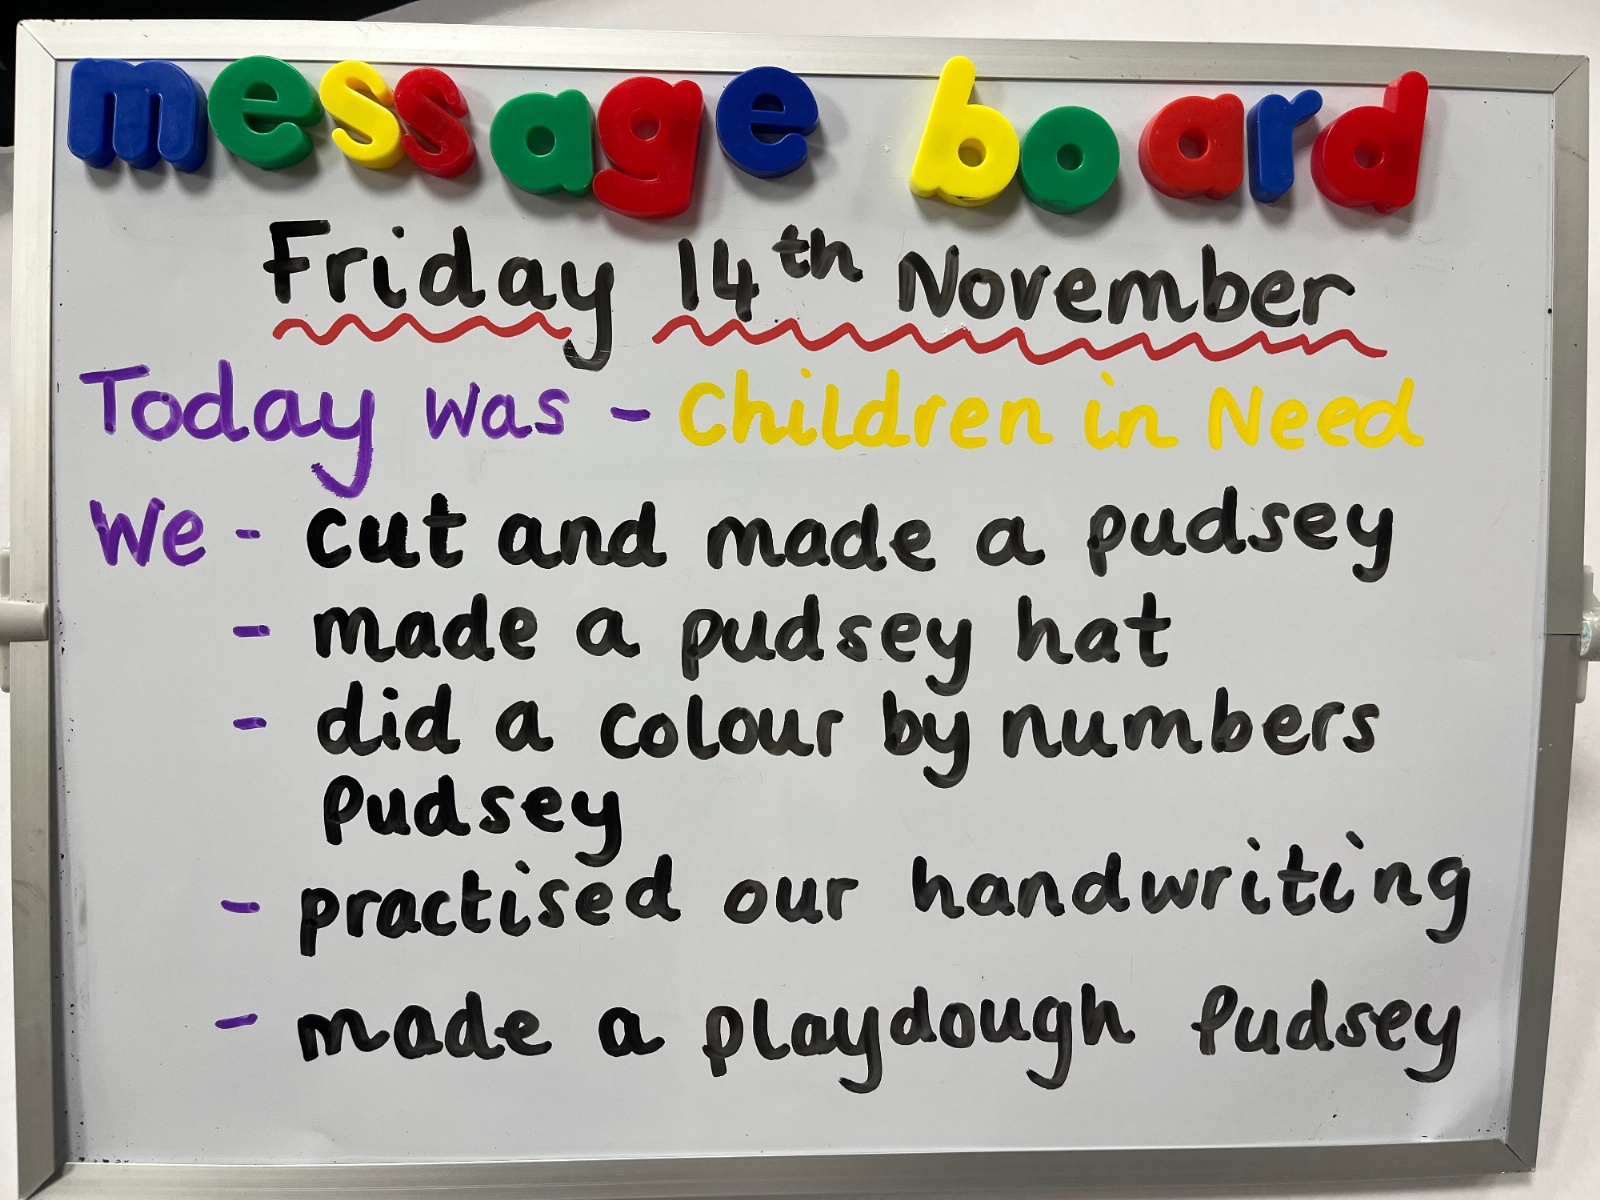 message board
Friday 14th November
Today was - Children in Need
We - cut and made a pudsey
- made a pudsey hat
- did a colour by numbers
Pudsey
- practised our handwriting
- made a playdough Pudsey